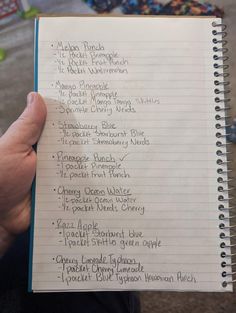 · Melon Punch
- ½ packet Pineapple
- ½ packet Fruit Punch
- ½ Packet Watermelon
· Mango Pineapple
- ½ packet Pineapple
- ½ packet Mango Tango Skittles
- Sprinkle Cherry Nerds
· Strawberry Blue
- ½ packet Starburst Blue
- ½ packet Strawberry Nerds
· Pineapple Punch ✓
- 1 packet Pineapple
- ½ packet Fruit Punch
· Cherry Ocean Water
- ½ packet Ocean Water
- ½ packet Nerds Cherry
· Razz Apple
- 1 packet Starburst blue
- 1 packet Skittles green apple
· Cherry Limeade Typhoon
- 1 packet Cherry Limeade
- 1 packet Blue Typhoon Hawaiian Punch